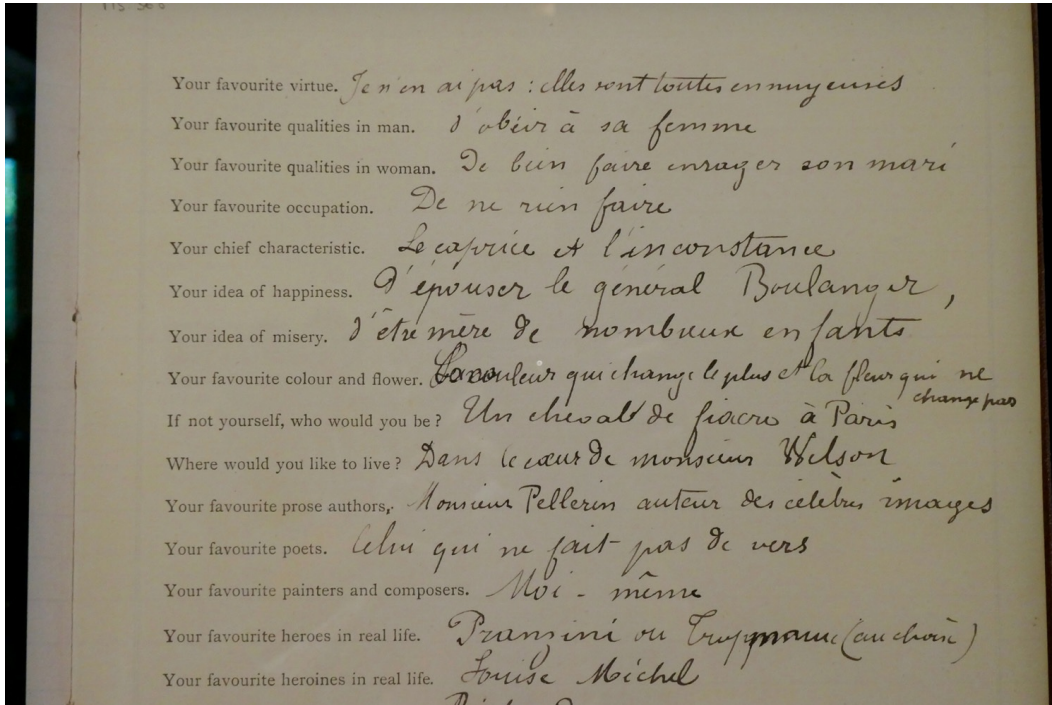 Your favourite virtue. Je n'en ai pas : elles sont toutes ennuyeuses
Your favourite qualities in man. d'obéir à sa femme
Your favourite qualities in woman. De bien faire enrager son mari
Your favourite occupation. De ne rien faire
Your chief characteristic. Le caprice et l'inconstance
Your idea of happiness. D'épouser le général Boulanger,
Your idea of misery. d'être mère de nombreux enfants
Your favourite colour and flower. La couleur qui change le plus et la fleur qui ne
change pas
If not yourself, who would you be? Un cheval de fiacre à Paris
Where would you like to live? Dans le cœur de monsieur Wilson
Your favourite prose authors, Monsieur Pellerin auteur des célèbres images
Your favourite poets. Celui qui ne fait pas de vers
Your favourite painters and composers. Moi - même
Your favourite heroes in real life. Pranzini ou Troppmann (au choix)
Your favourite heroines in real life. Louise Michel